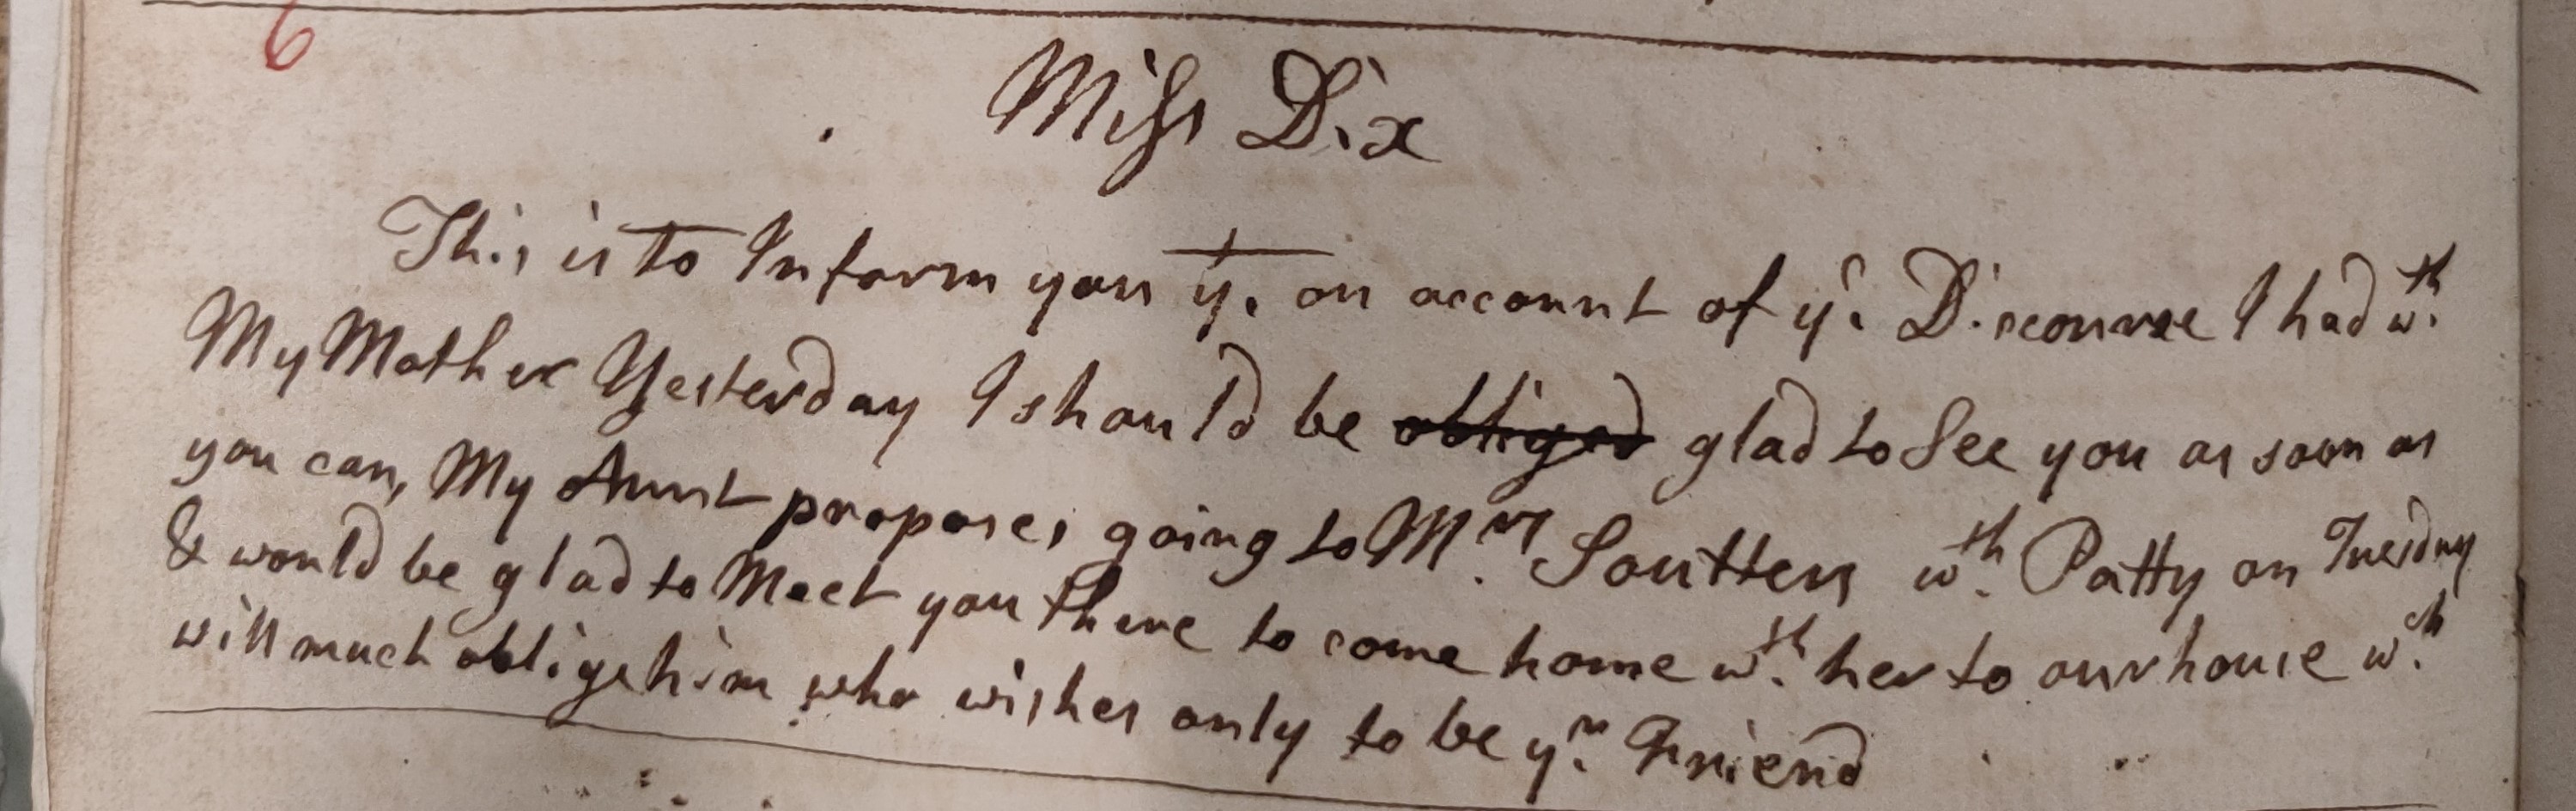 6
Miss Dix
This is to Inform you yt. on account of ye. Discourse I had wth.
My Mother Yesterday I should be obliged glad to See you as soon as
you can, My Aunt proposes going to Mrs. Soutten wth. Patty on Tuesday
& would be glad to Meet you there to come home wth. her to our house wch.
will much oblige him who wishes only to be yr. Friend